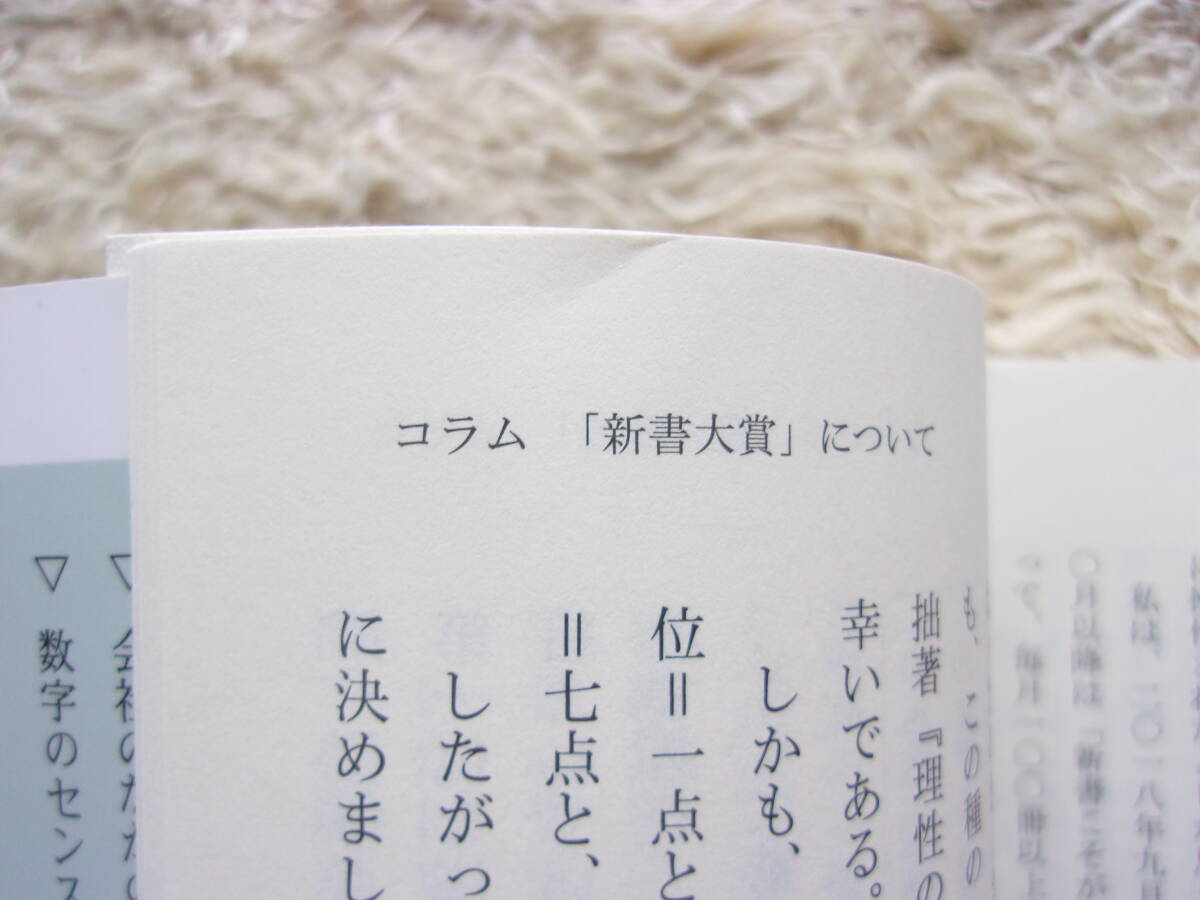 コラム 「新書大賞」について
も、この種の
拙著『理性の
幸いである。
しかも、
位=一点と
=七点と、
したがっ
に決めまし
私は、二〇一八年九月
〇月以降は「新書こそが
って、毎月一〇〇冊以上
▽ 会社の
▽ 数字のセンス